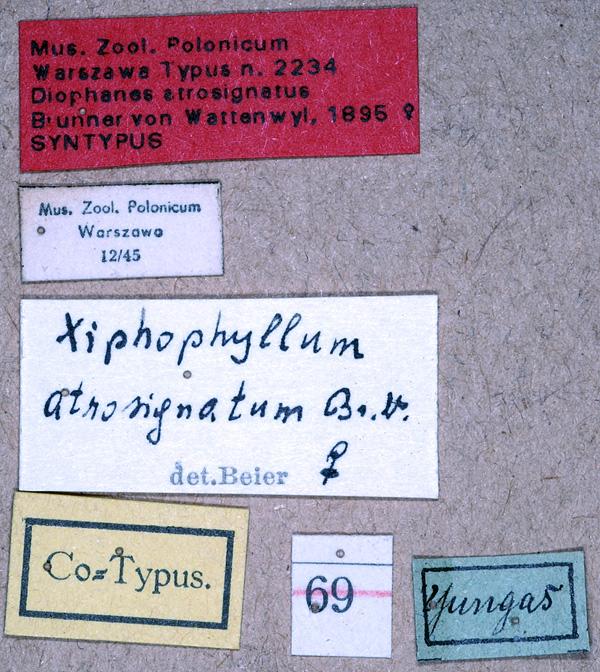 Mus. Zool. Polonicum
Warszawa Typus n. 2234
Diophanes atrosignatus
Brunner von Wattenwyl, 1895 ♀
SYNTYPUS
Mus. Zool. Polonicum
Warszawa
12/45
Xiphophyllum
atrosignatum Br. W.
det. Beier ♀
Co=Typus.
69
Yungas